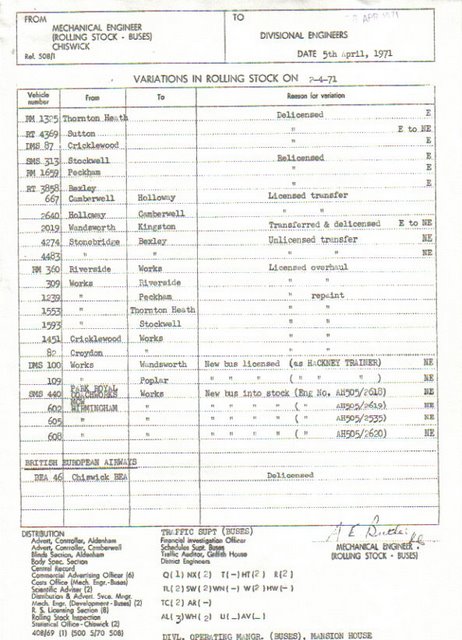 FROM TO APR 1971
MECHANICAL ENGINEER
(ROLLING STOCK - BUSES)
CHISWICK
Ref. 508/1
DIVISIONAL ENGINEERS
DATE 5th April, 1971
VARIATIONS IN ROLLING STOCK ON 2-4-71
Vehicle number From To Reason for variation
RM 1325 Thornton Heath Delicensed E
RT 4369 Sutton " E to NE
DMS 87 Cricklewood " E
SMS 313 Stockwell Relicensed E
RM 1659 Peckham " E
RT 3858 Bexley " E
667 Camberwell Holloway Licensed transfer
2640 Holloway Camberwell " "
2019 Wandsworth Kingston Transferred & delicensed E to NE
4274 Stonebridge Bexley Unlicensed transfer NE
4483 " " " " NE
RM 360 Riverside Works Licensed overhaul
309 Works Riverside " "
1239 " Peckham " repaint
1553 " Thornton Heath " "
1593 " Stockwell " "
1451 Cricklewood Works " "
82 Croydon " " "
DMS 100 Works Wandsworth New bus licensed (as HACKNEY TRAINER) NE
109 " Poplar " " " ( " " " ) NE
SMS 440 PARK ROYAL COACHWORKS Works New bus into stock (Eng No. AH505/2618) NE
602 MCW BIRMINGHAM " " " " " ( " AH505/2619) NE
605 " " " " " " ( " AH505/2535) NE
608 " " " " " " ( " AH505/2620) NE
BRITISH EUROPEAN AIRWAYS
BEA 46 Chiswick BEA Delicensed
DISTRIBUTION
Advert. Controller, Aldenham
Advert. Controller, Camberwell
Blinds Section, Aldenham
Body Spec. Section
Central Record
Commercial Advertising Officer (6)
Costs Office (Mech. Engr.-Buses)
Scientific Adviser (2)
Distribution & Advert. Svce. Mngr.
Mech. Engr. (Development - Buses) (2)
R. S. Licensing Section (8)
Rolling Stock Inspection
Statistical Office - Chiswick (2)
408/69 (1) (500 5/70 508)
TRAFFIC SUPT (BUSES)
Financial Investigation Officer
Schedules Supt. Buses
Traffic Auditor, Griffith House
District Engineers
Q(1) NX(2) T(-) HT(2) R(2)
TL(2) SW(2) WN(-) W(2) HW(-)
TC(2) AR(-)
AL(3) WH(2) U(-) AV(-)
DIVL. OPERATING MANGR. (BUSES), MANSION HOUSE
MECHANICAL ENGINEER
(ROLLING STOCK - BUSES)